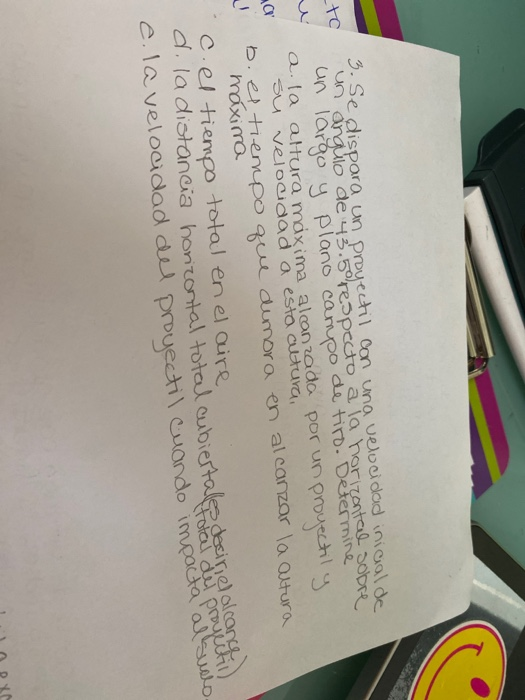 3. Se dispara un proyectil con una velocidad inicial de
un ángulo de 43.5° respecto a la horizontal sobre
un largo y plano campo de tiro. Determine
a. la altura máxima alcanzada por un proyectil y
su velocidad a esta altura.
b. el tiempo que dumora en alcanzar la altura
máxima
c. el tiempo total en el aire
d. la distancia horizontal total cubierta (es decir el alcance)
(total del proyectil)
e. la velocidad del proyectil cuando impacta al suelo